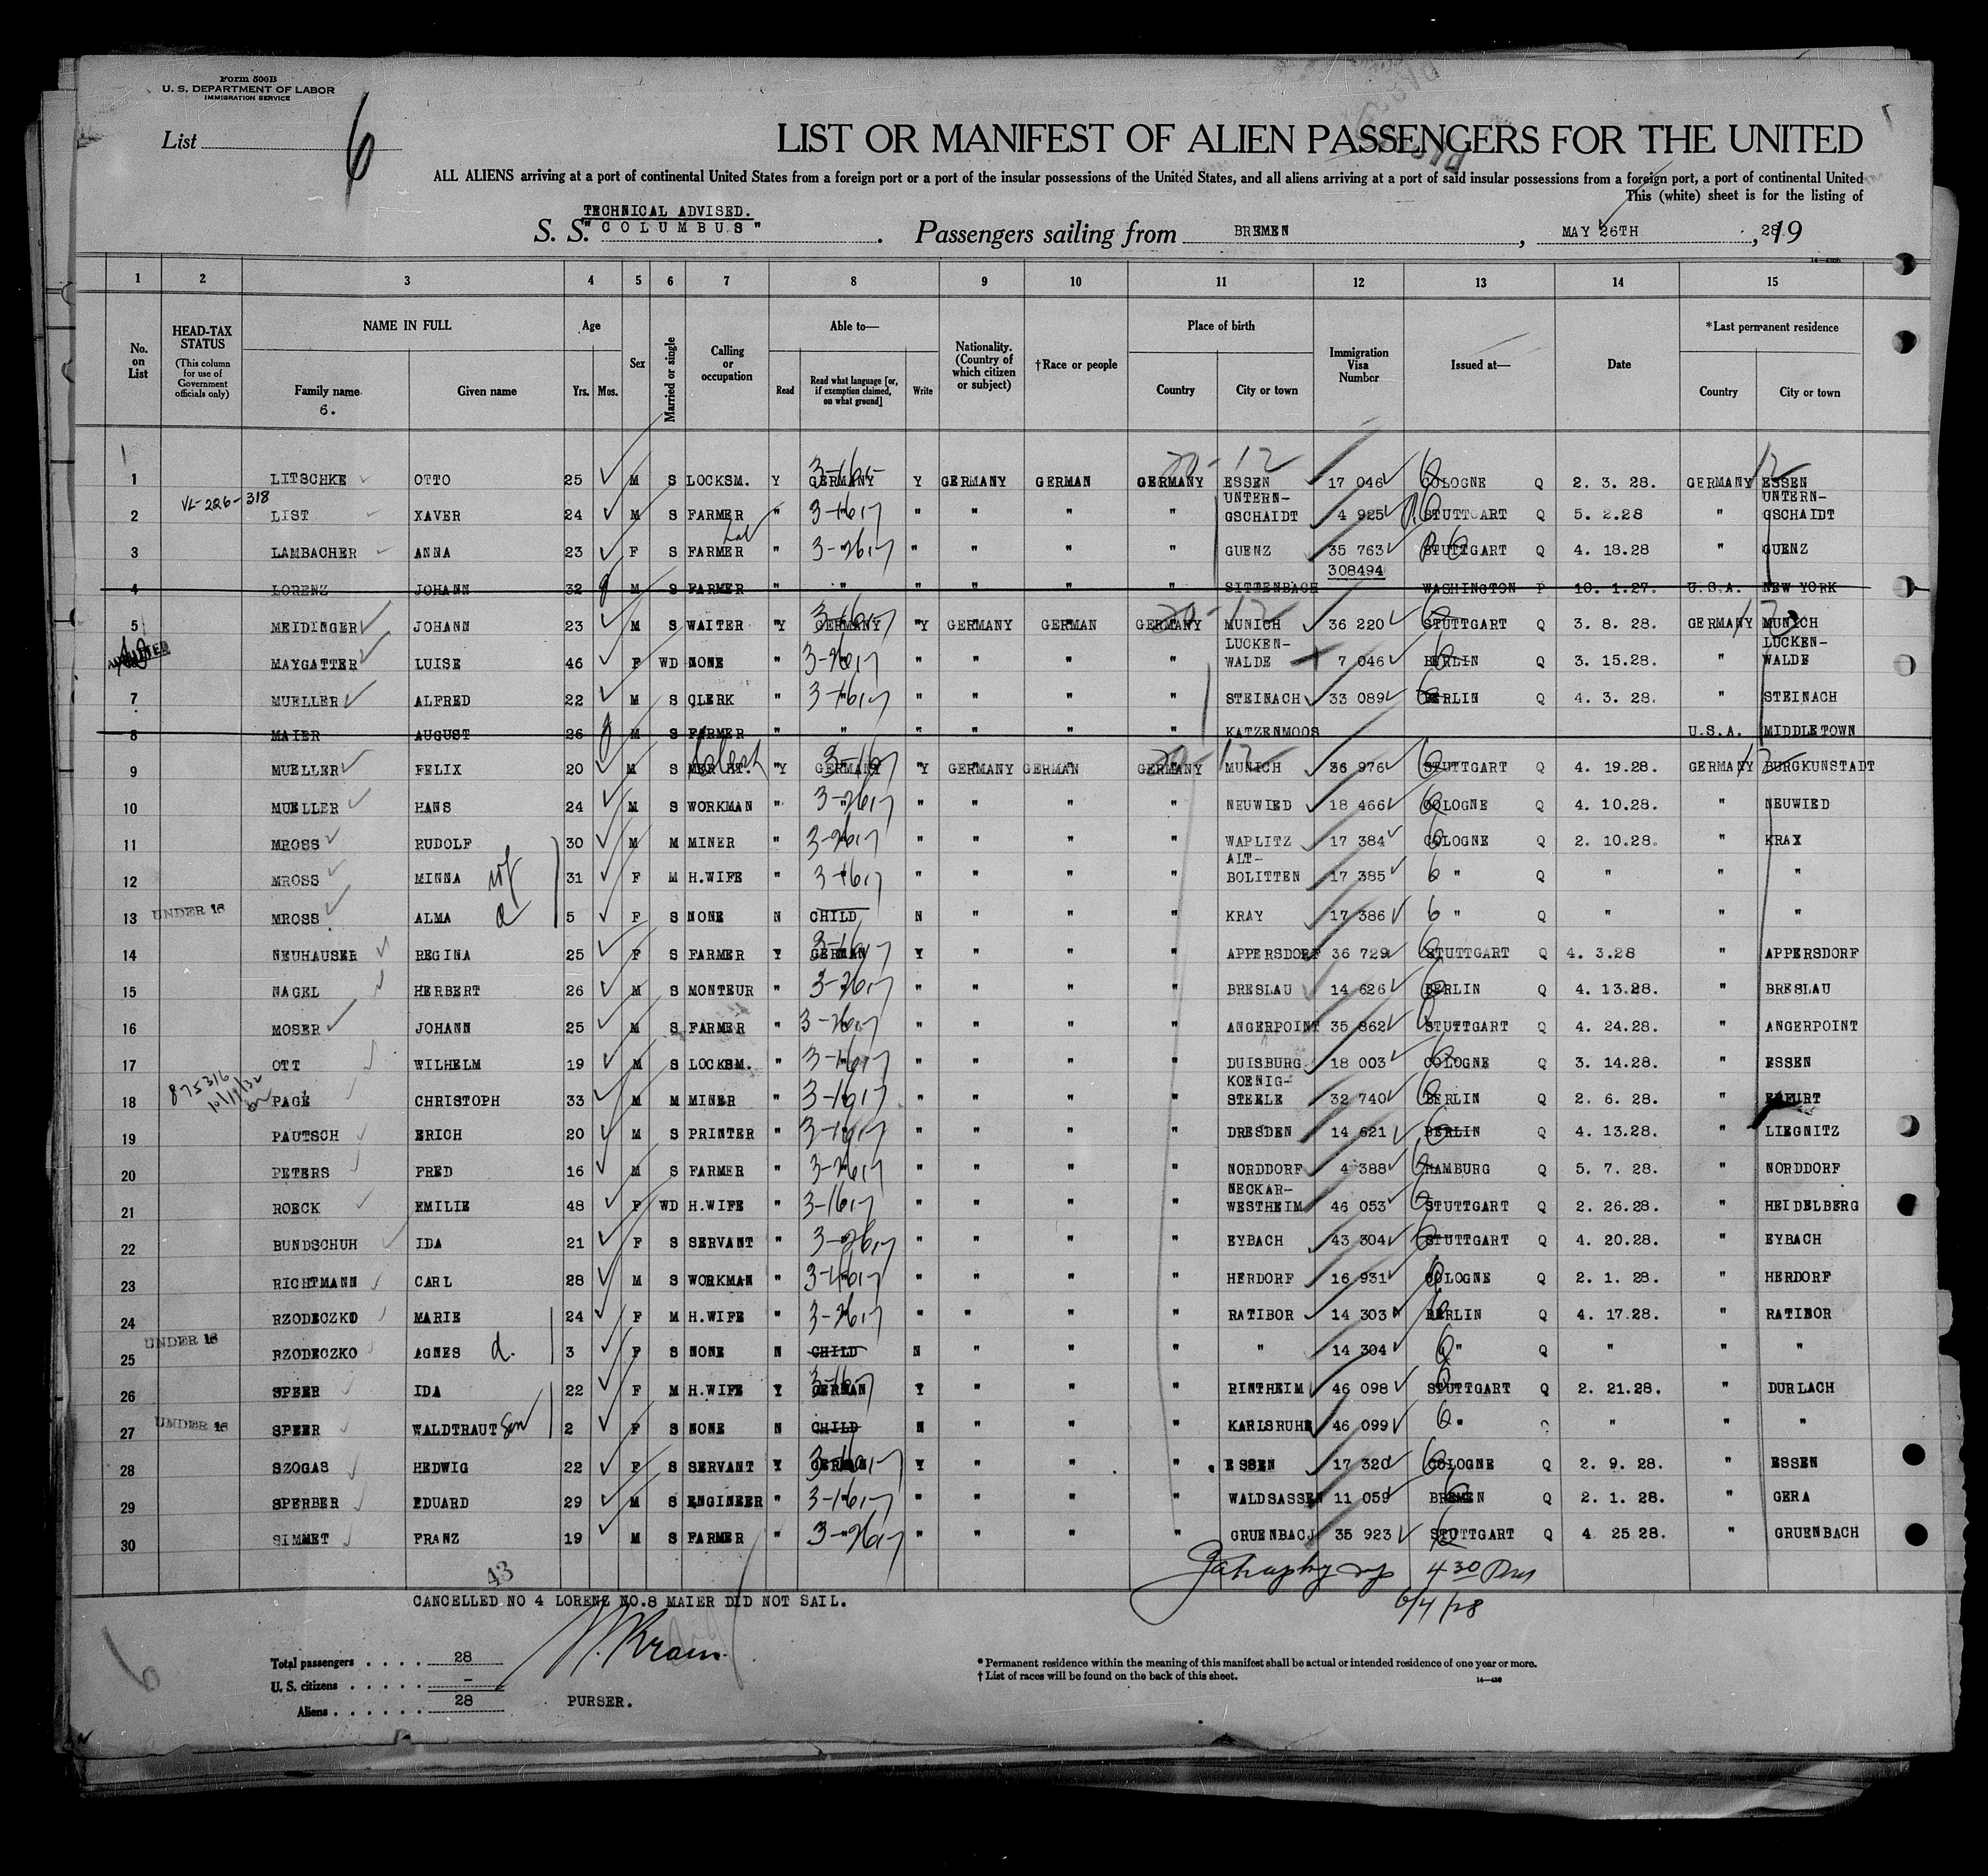 Form 500B
U. S. DEPARTMENT OF LABOR
IMMIGRATION SERVICE
List 6
LIST OR MANIFEST OF ALIEN PASSENGERS FOR THE UNITED
ALL ALIENS arriving at a port of continental United States from a foreign port or a port of the insular possessions of the United States, and all aliens arriving at a port of said insular possessions from a foreign port, a port of continental United
This (white) sheet is for the listing of
TECHNICAL ADVISED.
S. S. "COLUMBUS". Passengers sailing from BREMEN, MAY 26TH, 1928.
1 2 3 4 5 6 7 8 9 10 11 12 13 14 15
No. on List
HEAD-TAX STATUS (This column for use of Government officials only)
NAME IN FULL Family name Given name
6.
Age Yrs. Mos.
Sex
Married or single
Calling or occupation
Able to— Read Read what language [or, if exemption claimed, on what ground] Write
Nationality. (Country of which citizen or subject)
†Race or people
Place of birth Country City or town
Immigration Visa Number
Issued at—
Date
*Last permanent residence Country City or town
1 LITSCHKE OTTO 25 M S LOCKSM. Y GERMANY Y GERMANY GERMAN GERMANY ESSEN 17 046 COLOGNE Q 2. 3. 28. GERMANY ESSEN
VL-226-318
2 LIST XAVER 24 M S FARMER " " " " " " UNTERN-GSCHAIDT 4 925 STUTTGART Q 5. 2.28 " UNTERN-GSCHAIDT
3 LAMBACHER ANNA 23 F S FARMER " " " " " " GUENZ 35 763 STUTTGART Q 4. 18.28 " GUENZ
4 LORENZ JOHANN 32 M S FARMER " " " " " " SITTENBACH 308494 WASHINGTON P 10. 1.27. U.S.A. NEW YORK
5 MEIDINGER JOHANN 23 M S WAITER "Y GERMANY "Y GERMANY GERMAN GERMANY MUNICH 36 220 STUTTGART Q 3. 8. 28. GERMANY MUNICH
MAYGATTER LUISE 46 F WD NONE " " " " " " LUCKEN-WALDE 7 046 BERLIN Q 3. 15.28. " LUCKEN-WALDE
7 MUELLER ALFRED 22 M S CLERK " " " " " " STEINACH 33 089 BERLIN Q 4. 3. 28. " STEINACH
8 MAIER AUGUST 26 M S FARMER " " " " " " KATZENMOOS U.S.A. MIDDLETOWN
9 MUELLER FELIX 20 M S MERHT. "Y GERMANY "Y GERMANY GERMAN GERMANY MUNICH 36 976 STUTTGART Q 4. 19.28. GERMANY BURGKUNSTADT
10 MUELLER HANS 24 M S WORKMAN " " " " " " NEUWIED 18 466 COLOGNE Q 4. 10.28. " NEUWIED
11 MROSS RUDOLF 30 M M MINER " " " " " " WAPLITZ 17 384 COLOGNE Q 2. 10.28. " KRAX
12 MROSS MINNA wf 31 F M H.WIFE " " " " " " ALT-BOLITTEN 17 385 " Q " " "
UNDER 16
13 MROSS ALMA d 5 F S NONE N CHILD N " " " KRAY 17 386 " Q " " "
14 NEUHAUSER REGINA 25 F S FARMER Y GERMAN Y " " " APPERSDORF 36 729 STUTTGART Q 4. 3.28 " APPERSDORF
15 NAGEL HERBERT 26 M S MONTEUR " " " " " " BRESLAU 14 626 BERLIN Q 4. 13.28. " BRESLAU
16 MOSER JOHANN 25 M S FARMER " " " " " " ANGERPOINT 35 862 STUTTGART Q 4. 24.28. " ANGERPOINT
17 OTT WILHELM 19 M S LOCKSM. " " " " " " DUISBURG 18 003 COLOGNE Q 3. 14.28. " ESSEN
875316 10/11/32
18 PAGE CHRISTOPH 33 M M MINER " " " " " " KOENIG-STEELE 32 740 BERLIN Q 2. 6. 28. " ERFURT
19 PAUTSCH ERICH 20 M S PRINTER " " " " " " DRESDEN 14 621 BERLIN Q 4. 13.28. " LIEGNITZ
20 PETERS FRED 16 M S FARMER " " " " " " NORDDORF 4 388 HAMBURG Q 5. 7. 28. " NORDDORF
21 ROECK EMILIE 48 F WD H.WIFE " " " " " " NECKAR-WESTHEIM 46 053 STUTTGART Q 2. 26.28. " HEIDELBERG
22 BUNDSCHUH IDA 21 F S SERVANT " " " " " " EYBACH 43 304 STUTTGART Q 4. 20.28. " EYBACH
23 RICHTMANN CARL 28 M S WORKMAN " " " " " " HERDORF 16 931 COLOGNE Q 2. 1. 28. " HERDORF
24 RZODECZKO MARIE 24 F M H.WIFE " " " " " " RATIBOR 14 303 BERLIN Q 4. 17.28. " RATIBOR
UNDER 16
25 RZODECZKO AGNES d. 3 F S NONE N CHILD N " " " " 14 304 " Q " " "
26 SPEER IDA 22 F M H.WIFE Y GERMAN Y " " " RINTHEIM 46 098 STUTTGART Q 2. 21.28. " DURLACH
UNDER 16
27 SPEER WALDTRAUT son 2 F S NONE N CHILD N " " " KARLSRUHE 46 099 " Q " " "
28 SZOGAS HEDWIG 22 F S SERVANT Y GERMAN Y " " " ESSEN 17 320 COLOGNE Q 2. 9. 28. " ESSEN
29 SPERBER EDUARD 29 M S ENGINEER " " " " " " WALDSASSEN 11 059 BREMEN Q 2. 1. 28. " GERA
30 SIMMET FRANZ 19 M S FARMER " " " " " " GRUENBACJ 35 923 STUTTGART Q 4 25 28. " GRUENBACH
43
4 30
6/4/28
CANCELLED NO 4 LORENZ NO.8 MAIER DID NOT SAIL.
6
Total passengers . . . . . 28
U. S. citizens . . . . . –
Aliens . . . . . . 28
PURSER.
* Permanent residence within the meaning of this manifest shall be actual or intended residence of one year or more.
† List of races will be found on the back of this sheet.